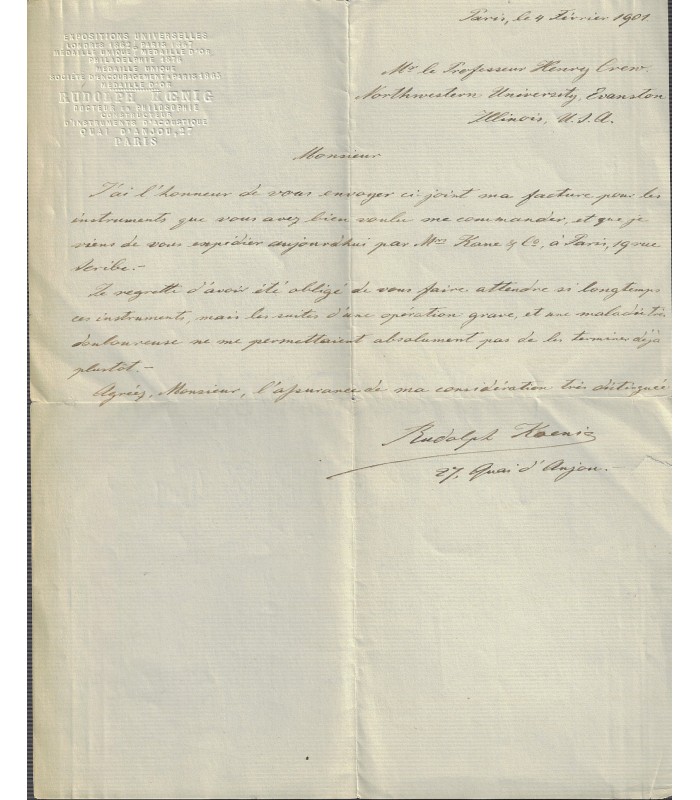 EXPOSITIONS UNIVERSELLES
LONDRES 1862, PARIS 1867
MEDAILLE UNIQUE MEDAILLE D'OR
PHILADELPHIE 1876
MEDAILLE UNIQUE
SOCIÉTÉ D'ENCOURAGEMENT PARIS
MEDAILLE D'OR
RUDOLPH KŒNIG
DOCTEUR EN PHILOSOPHIE
CONSTRUCTEUR
D'INSTRUMENTS D'ACOUSTIQUE
QUAI D'ANJOU, 27
PARIS
Paris, le 4 Février 1901.
Mr. le Professeur Henry Crew.
Northwestern University, Evanston
Illinois, U.S.A.
Monsieur
J'ai l'honneur de vous envoyer ci joint ma facture pour les
instruments que vous avez bien voulu me commander, et que je
viens de vous expédier aujourd'hui par Mrs Kane & Co, à Paris, 19 rue
Scribe.–
Je regrette d'avoir été obligé de vous faire attendre si longtemps
ces instruments, mais les suites d'une opération grave, et une maladie très
douloureuse ne me permettaient absolument pas de les terminer déjà
plustot.–
Agréez, Monsieur, l'assurance de ma considération très distinguée
Rudolph Koenig
27, Quai d'Anjou.–